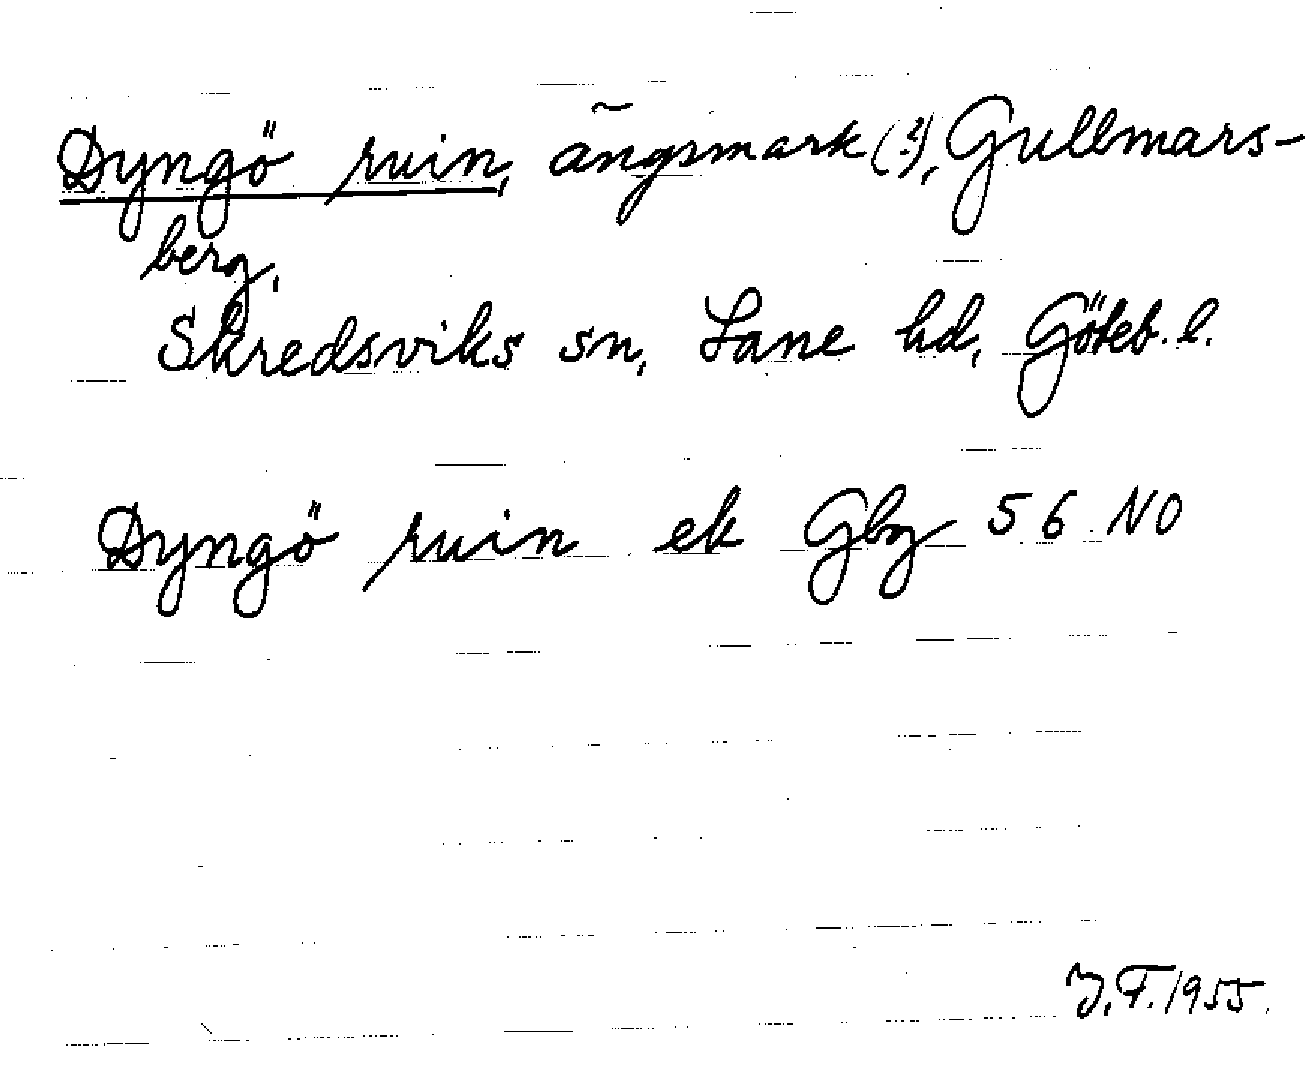 Dyngö ruin, ängsmark (?), Gullmars-
berg,
Skredsviks sn, Lane hd, Göteb. l.
Dyngö ruin ek Gbg 56 NO
J.F. 1955.